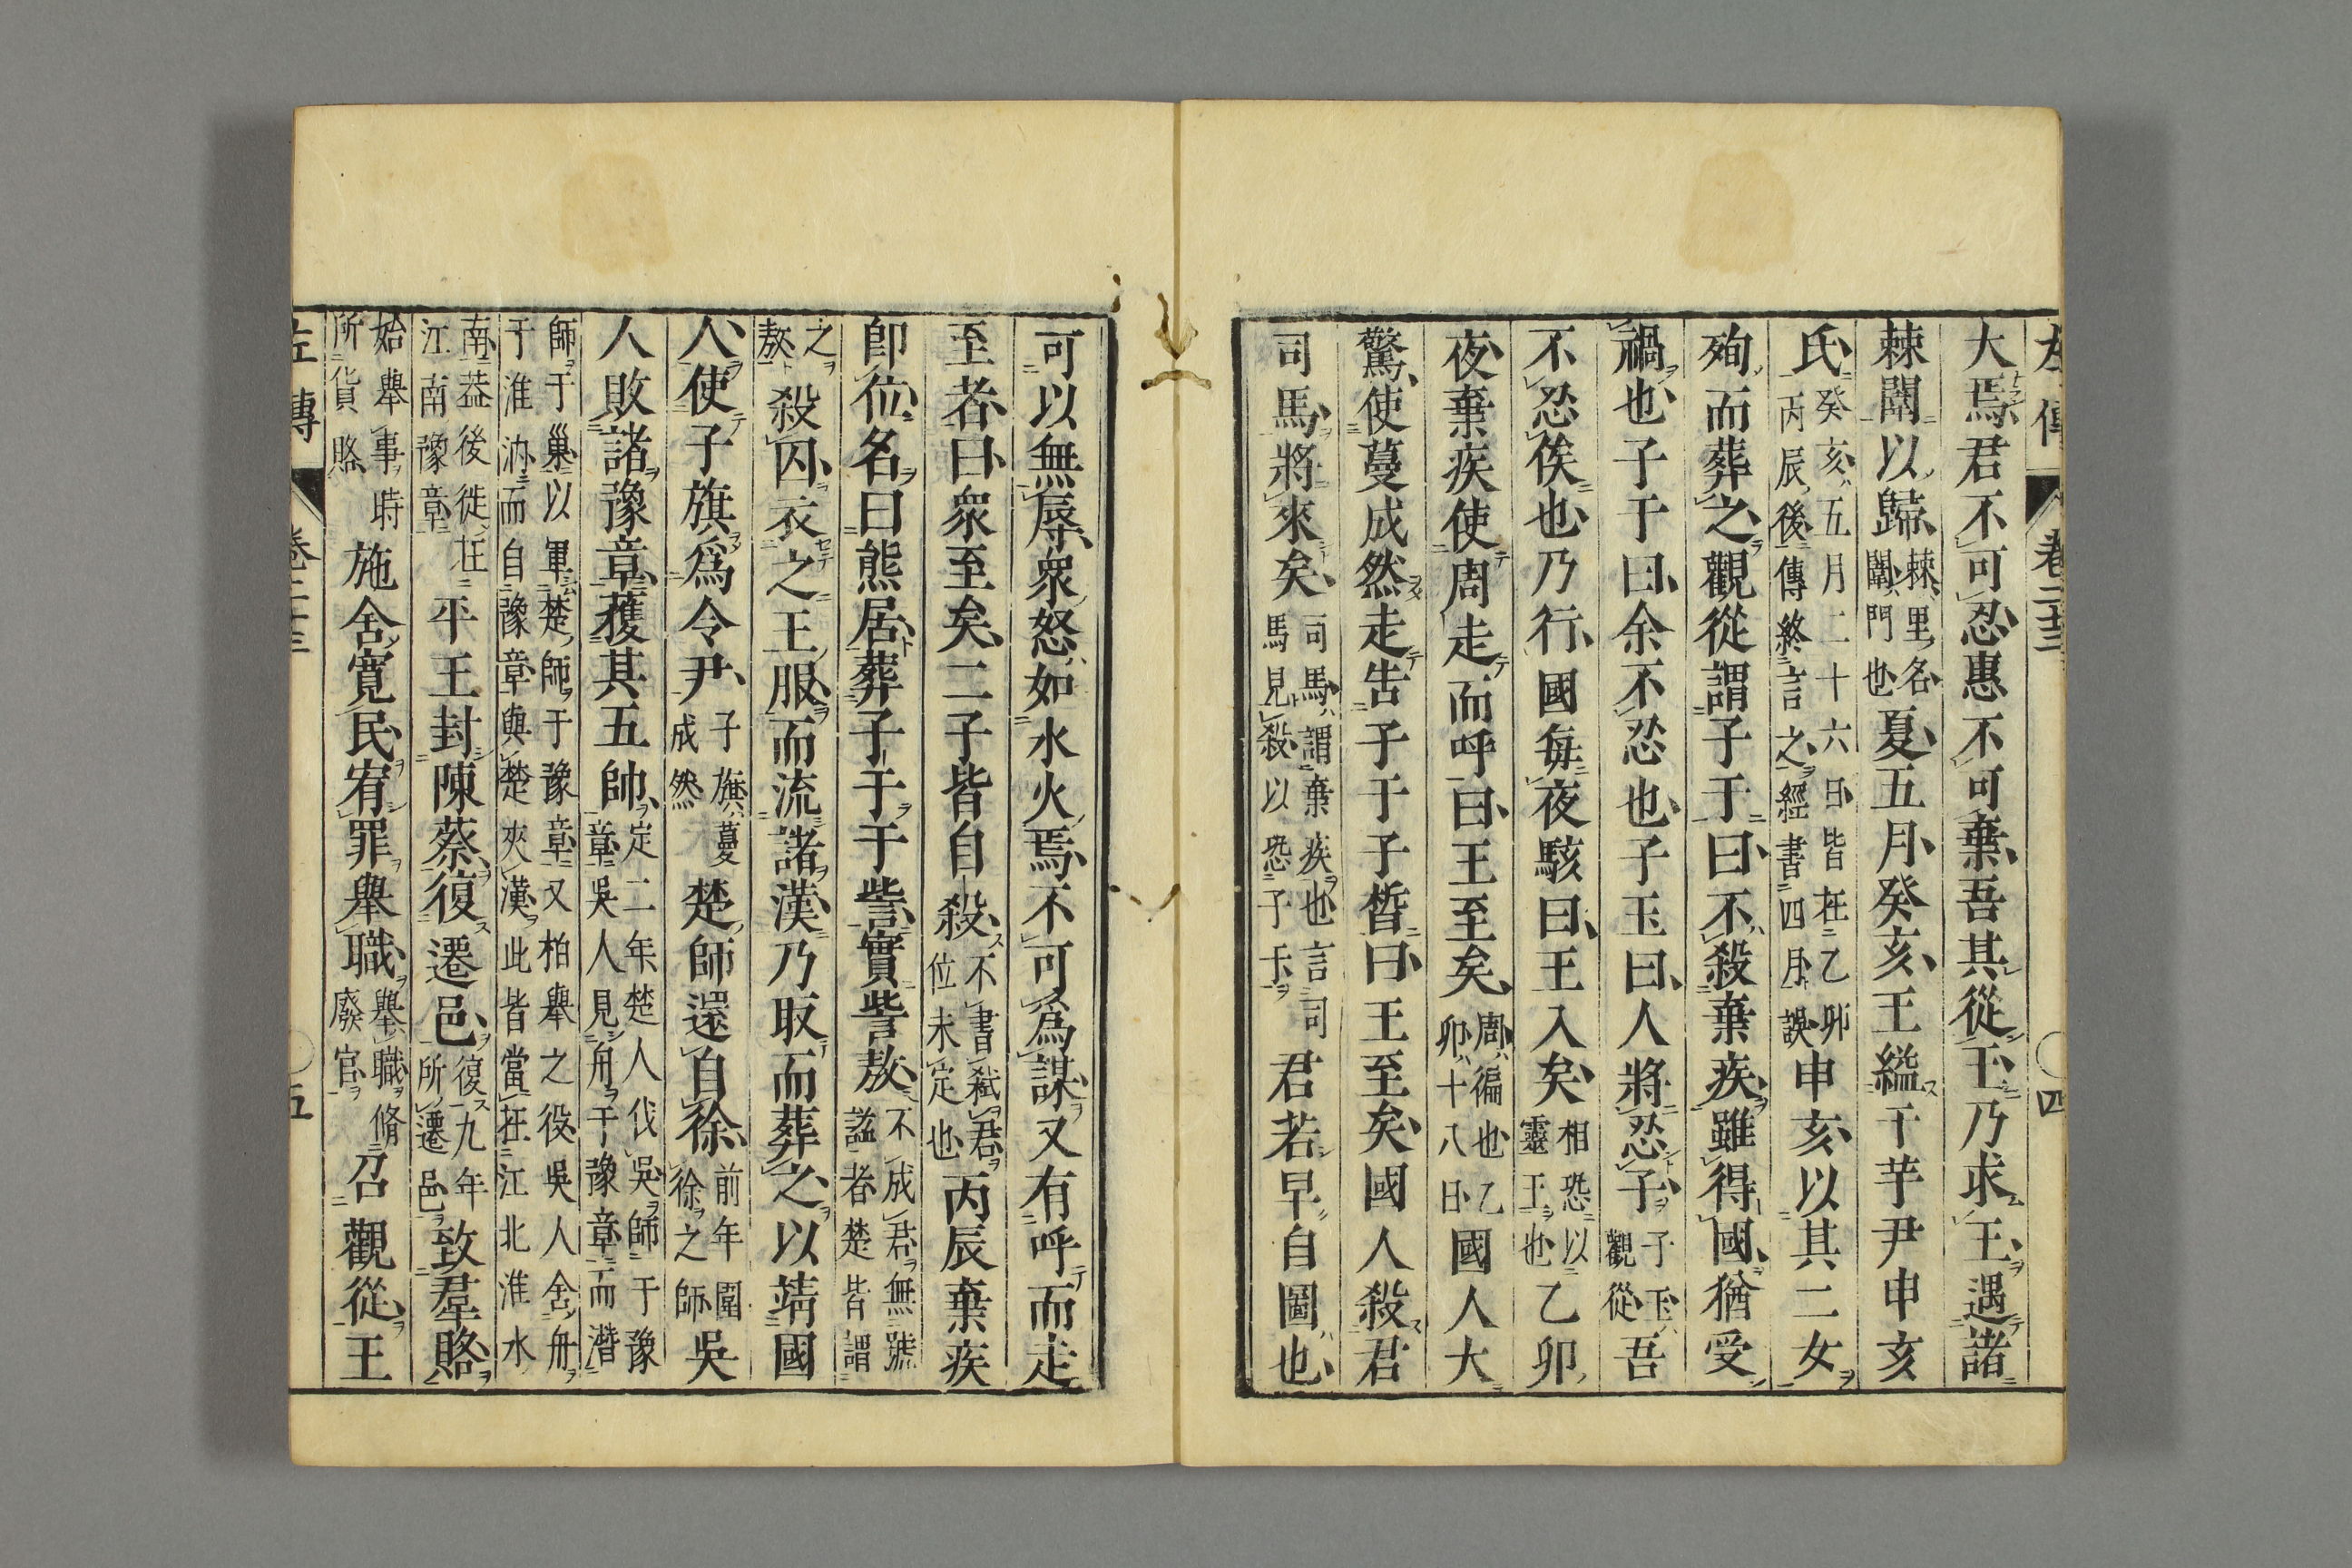 左傳 卷二十三 四
大焉君不可忍惠不可棄吾其從王乃求王遇諸
棘闈以歸棘里名闈門也夏五月癸亥王縊于芋尹申亥
氏癸亥五月二十六日皆在乙卯丙辰後傳終言之經書四月誤申亥以其二女
殉而葬之觀從謂子干曰不殺棄疾雖得國猶受
禍也子干曰余不忍也子玉曰人將忍子子玉觀從吾
不忍俟也乃行國每夜駭曰王入矣相恐以靈王也乙卯
夜棄疾使周走而呼曰王至矣周徧也乙卯十八日國人大
驚使蔓成然走告子干子晳曰王至矣國人殺君
司馬將來矣司馬謂棄疾也言司馬見殺以恐子干君若早自圖也
可以無辱衆怒如水火焉不可爲謀又有呼而走
至者曰衆至矣二子皆自殺不書弑君位未定也丙辰棄疾
卽位名曰熊居葬子干于訾實訾敖不成君無號謚者楚皆謂
之敖殺囚衣之王服而流諸漢乃取而葬之以靖國
人使子旗爲令尹子旗蔓成然楚師還自徐前年圍徐之師吳
人敗諸豫章獲其五帥定二年楚人伐吳師于豫章吳人見舟于豫章而潛
師于巢以軍楚師于豫章又柏舉之役吳人舍舟于淮汭而自豫章與楚夾漢此皆當在江北淮水
南葢後徙在江南豫章平王封陳蔡復遷邑復九年所遷邑致羣賂
始舉事時所貨賂施舍寬民宥罪舉職舉職脩廢官召觀從王
左傳 卷二十三 五